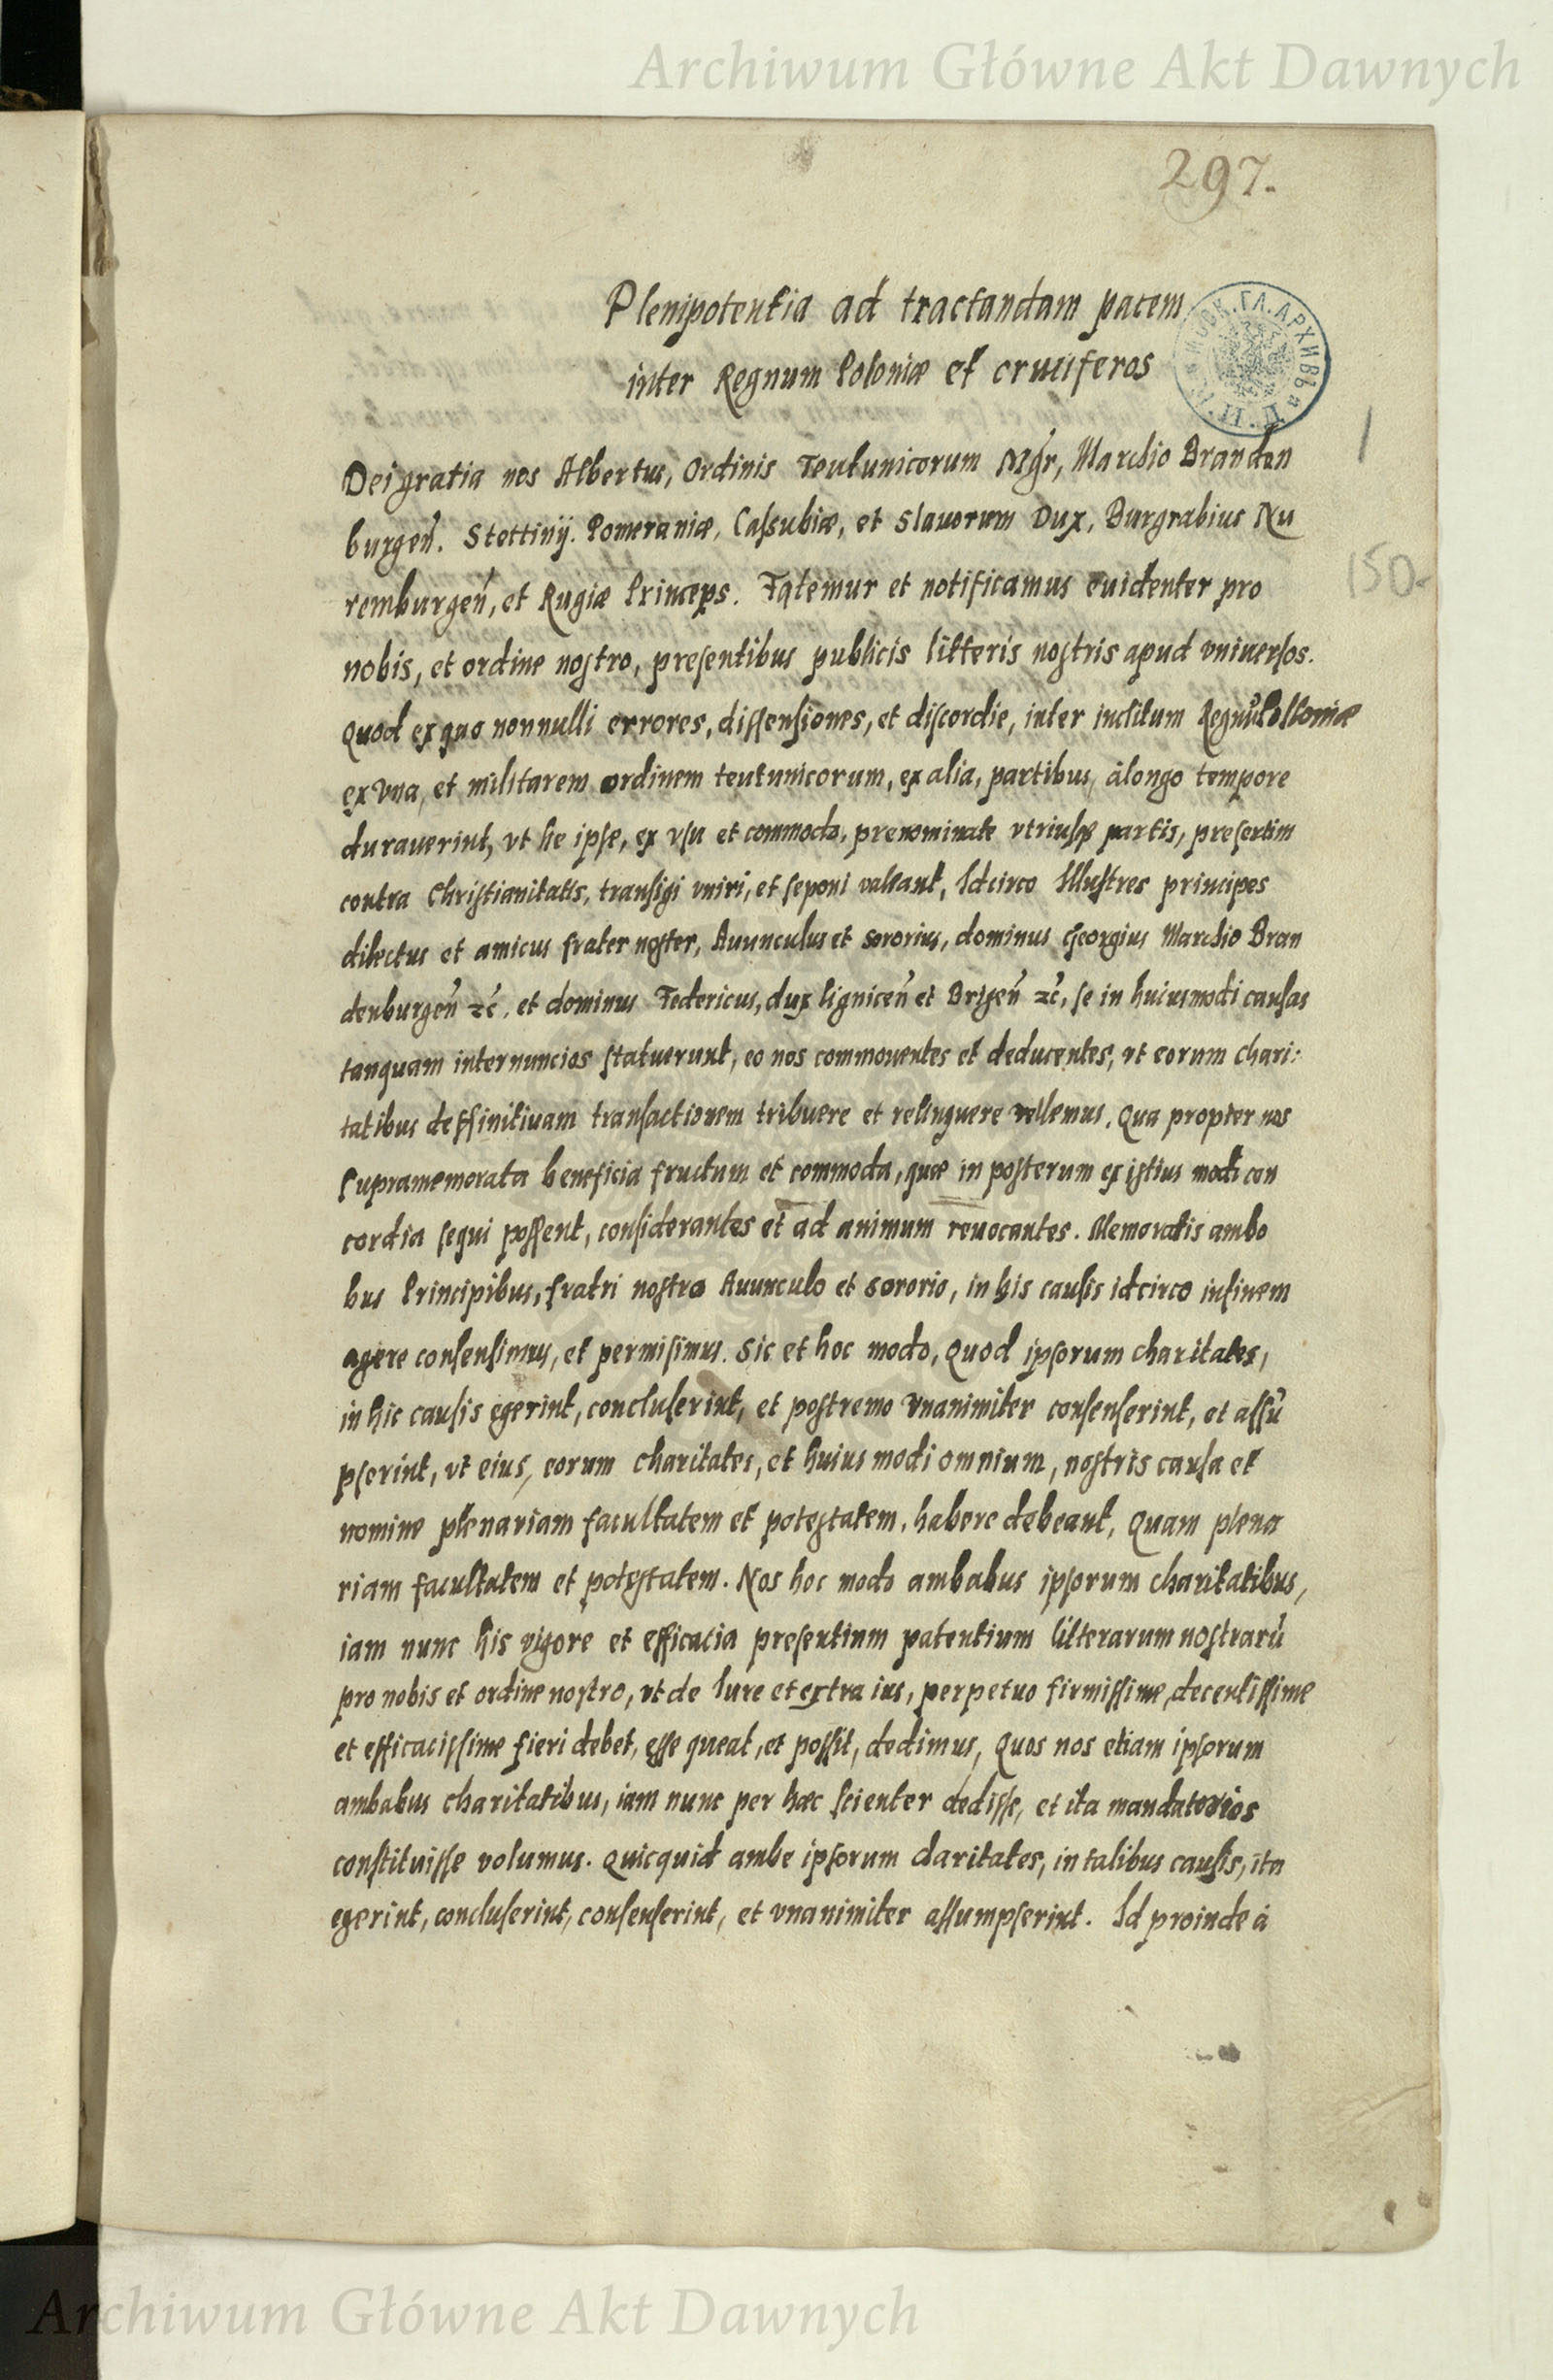 Archiwum Główne Akt Dawnych
297.
Plenipotentia ad tractandam pacem
inter Regnum Poloniæ et cruciferos
МОСК. ГЛ. АРХИВЪ
1
Dei gratia nos Albertus, Ordinis Teutunicorum Mgr, Marchio Branden
burgen̄. Stettinij. Pomeraniæ, Cassubiæ, et Slavorum Dux, Burgrabius Nu
150.
remburgen̄, et Rugiæ Princeps. Fatemur et notificamus euidenter pro
nobis, et ordine nostro, presentibus publicis litteris nostris apud vniuersos.
Quod ex quo nonnulli errores, dissensiones, et discordie, inter inclitum Regnū Polloniæ
ex vna, et militarem ordinem teutunicorum, ex alia, partibus, à longo tempore
durauerint, vt he ipse, ex vsu et commodo, prenominate vtriusq̄ partis, presertim
contra Christianitatis, transigi vniri, et seponi valeant, Idcirco Illustres principes
dilectus et amicus frater noster, Auunculus et sororius, dominus Georgius Marchio Bran
denburgen̄ zc̄, et dominus Federicus, dux lignicen̄ et Brigen̄ zc̄, se in huiusmodi causas
tanquam internuncios statuerunt, eo nos commouentes et deducentes, vt eorum chari:
tatibus deffinitiuam transactionem tribuere et relinquere vellemus. Qua propter nos
supramemorata beneficia fructum et commoda, quæ in posterum ex istius modi con
cordia sequi possent, considerantes et ad animum reuocantes. Memoratis ambo
bus Principibus, fratri nostro Auunculo et sororio, in his causis idcirco in finem
agere consensimus, et permisimus. Sic et hoc modo, Quod ipsorum charitates,
in hic causis egerint, concluserint, et postremo vnanimiter consenserint, et assū
pserint, vt eius, eorum charitates, et huius modi omnium, nostris causa et
nomine plenariam facultatem et potestatem, habere debeant, Quam plena
riam facultatem et potestatem. Nos hoc modo ambabus ipsorum charitatibus,
iam nunc his vigore et efficacia presentium patentium litterarum nostrarū
pro nobis et ordine nostro, vt de Iure et extra ius, perpetuo firmissime, decentissime
et efficacissime fieri debet, esse queat, et possit, dedimus, Quos nos etiam ipsorum
ambabus charitatibus, iam nunc per hæc scienter dedisse, et ita mandatorios
constituisse volumus. Quicquid ambe ipsorum claritates, in talibus causis, ita
egerint, concluserint, consenserint, et vnanimiter assumpserint. Id proinde à
Archiwum Główne Akt Dawnych